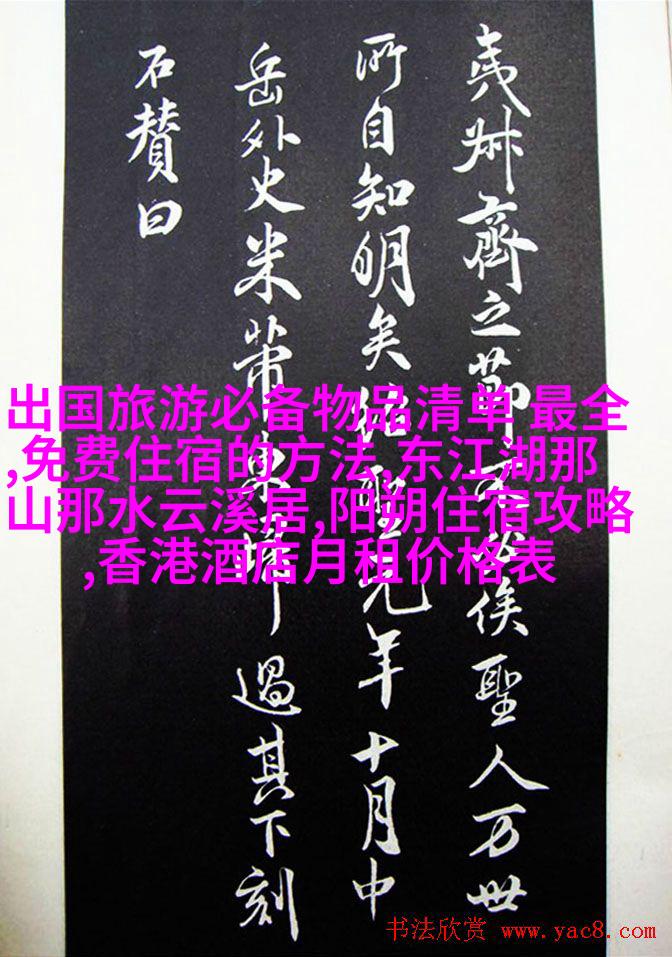 夷叔齊之節必俟聖人万世
所自知明矣紹聖元年十月中
岳外史米芾東歸過其下刻
石賛曰
出国旅游必备物品清单 最全
,免费住宿的方法,东江湖那
山那水云溪居,阳朔住宿攻略
,香港酒店月租价格表
书法欣赏 www.yac8.com